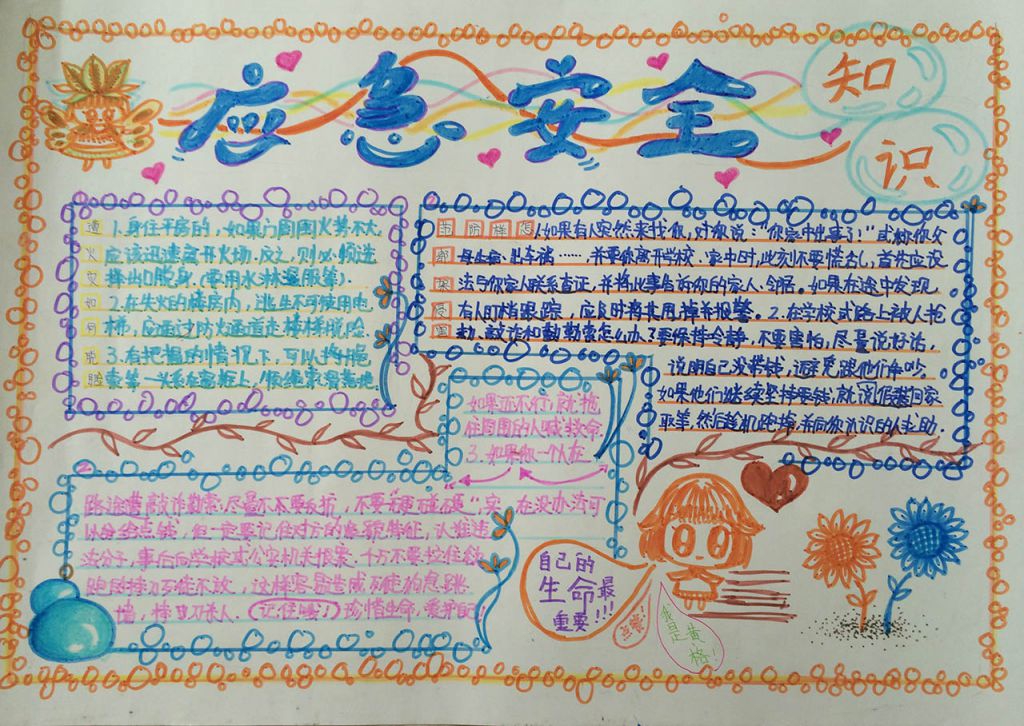 应急安全
知
识
遭
火
灾
如
何
脱
险
1.身住平房的,如果门周围火势不大,
应该迅速离开火场.反之,则必须选
择出口脱身.(要用水淋湿服等).
2.在失火的楼房内,逃生不可使用电
梯,应通过防火通道走楼梯脱险.
3.有把握的情况下,可以将绳
索等一头系在窗框上,
1.如果有人突然来找你,对你说:"你家中出事了!"或称你父
母生病、出车祸……并要你离开学校、家中时,此刻不要慌乱,首先应设
法与你家人联系查证,并将此事告诉你的家人、如果在途中发现
有人盯梢跟踪,应及时将其甩掉并报警。2.在学校或路上被人抢
劫、敲诈和勒索怎么办?要保持冷静,不要害怕,尽量说好话,
说明自己没带钱,
如果他们继续坚持要钱,就说回家
取等,然后趁机跑掉,并向你认识的人求助.
如果还不行,就拖
住周围的人喊救命
3.如果你一个人在
路途遭敲诈勒索,尽量不要反抗,不要"硬碰硬",实在没办法可
以分给点钱,但一定要记住对方的特征,认准违
法分子,事后向学校或公安机关报案.千万不要拉住
死不放,这样容易造成
墙,(记住喽!)珍惜生命,爱护自己!
自己的
生命最
重要!!!
我是黄
格!